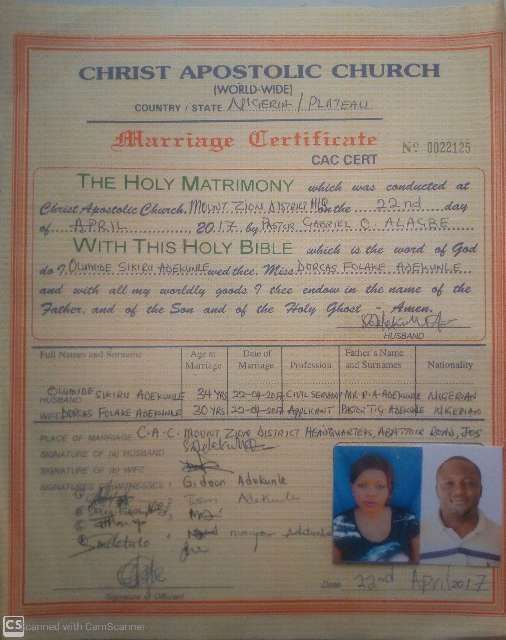 CHRIST APOSTOLIC CHURCH
(WORLD-WIDE)
COUNTRY / STATE NIGERIA / PLATEAU
Marriage Certificate
No 0022125
CAC CERT
THE HOLY MATRIMONY which was conducted at
Christ Apostolic Church, MOUNT ZION DISTRICT H/Q on the 22nd day
of APRIL 2017 by PASTOR GABRIEL O. ALAGBE
WITH THIS HOLY BIBLE which is the word of God
do I OLUMIDE SIKIRU ADEKUNLE wed thee, Miss DORCAS FOLAKE ADEKUNLE
and with all my worldly goods I thee endow in the name of the
Father, and of the Son and of the Holy Ghost - Amen.
HUSBAND
Full Names and Surname Age at Marriage Date of Marriage Profession Father's Name and Surnames Nationality
HUSBAND OLUMIDE SIKIRU ADEKUNLE 34 YRS 22-04-2017 CIVIL SERVANT MR P.A. ADEKUNLE NIGERIAN
WIFE DORCAS FOLAKE ADEKUNLE 30 YRS 22-04-2017 APPLICANT PASTOR T.G. ADEKUNLE NIGERIAN
PLACE OF MARRIAGE C.A.C. MOUNT ZION DISTRICT HEADQUARTERS, ABATTOIR ROAD, JOS
SIGNATURE OF (a) HUSBAND
SIGNATURE OF (b) WIFE
SIGNATURES OF WITNESSES 1 Gideon Adekunle
Adekunle
Signature of Officiant
Date 22nd April 2017
CS Scanned with CamScanner